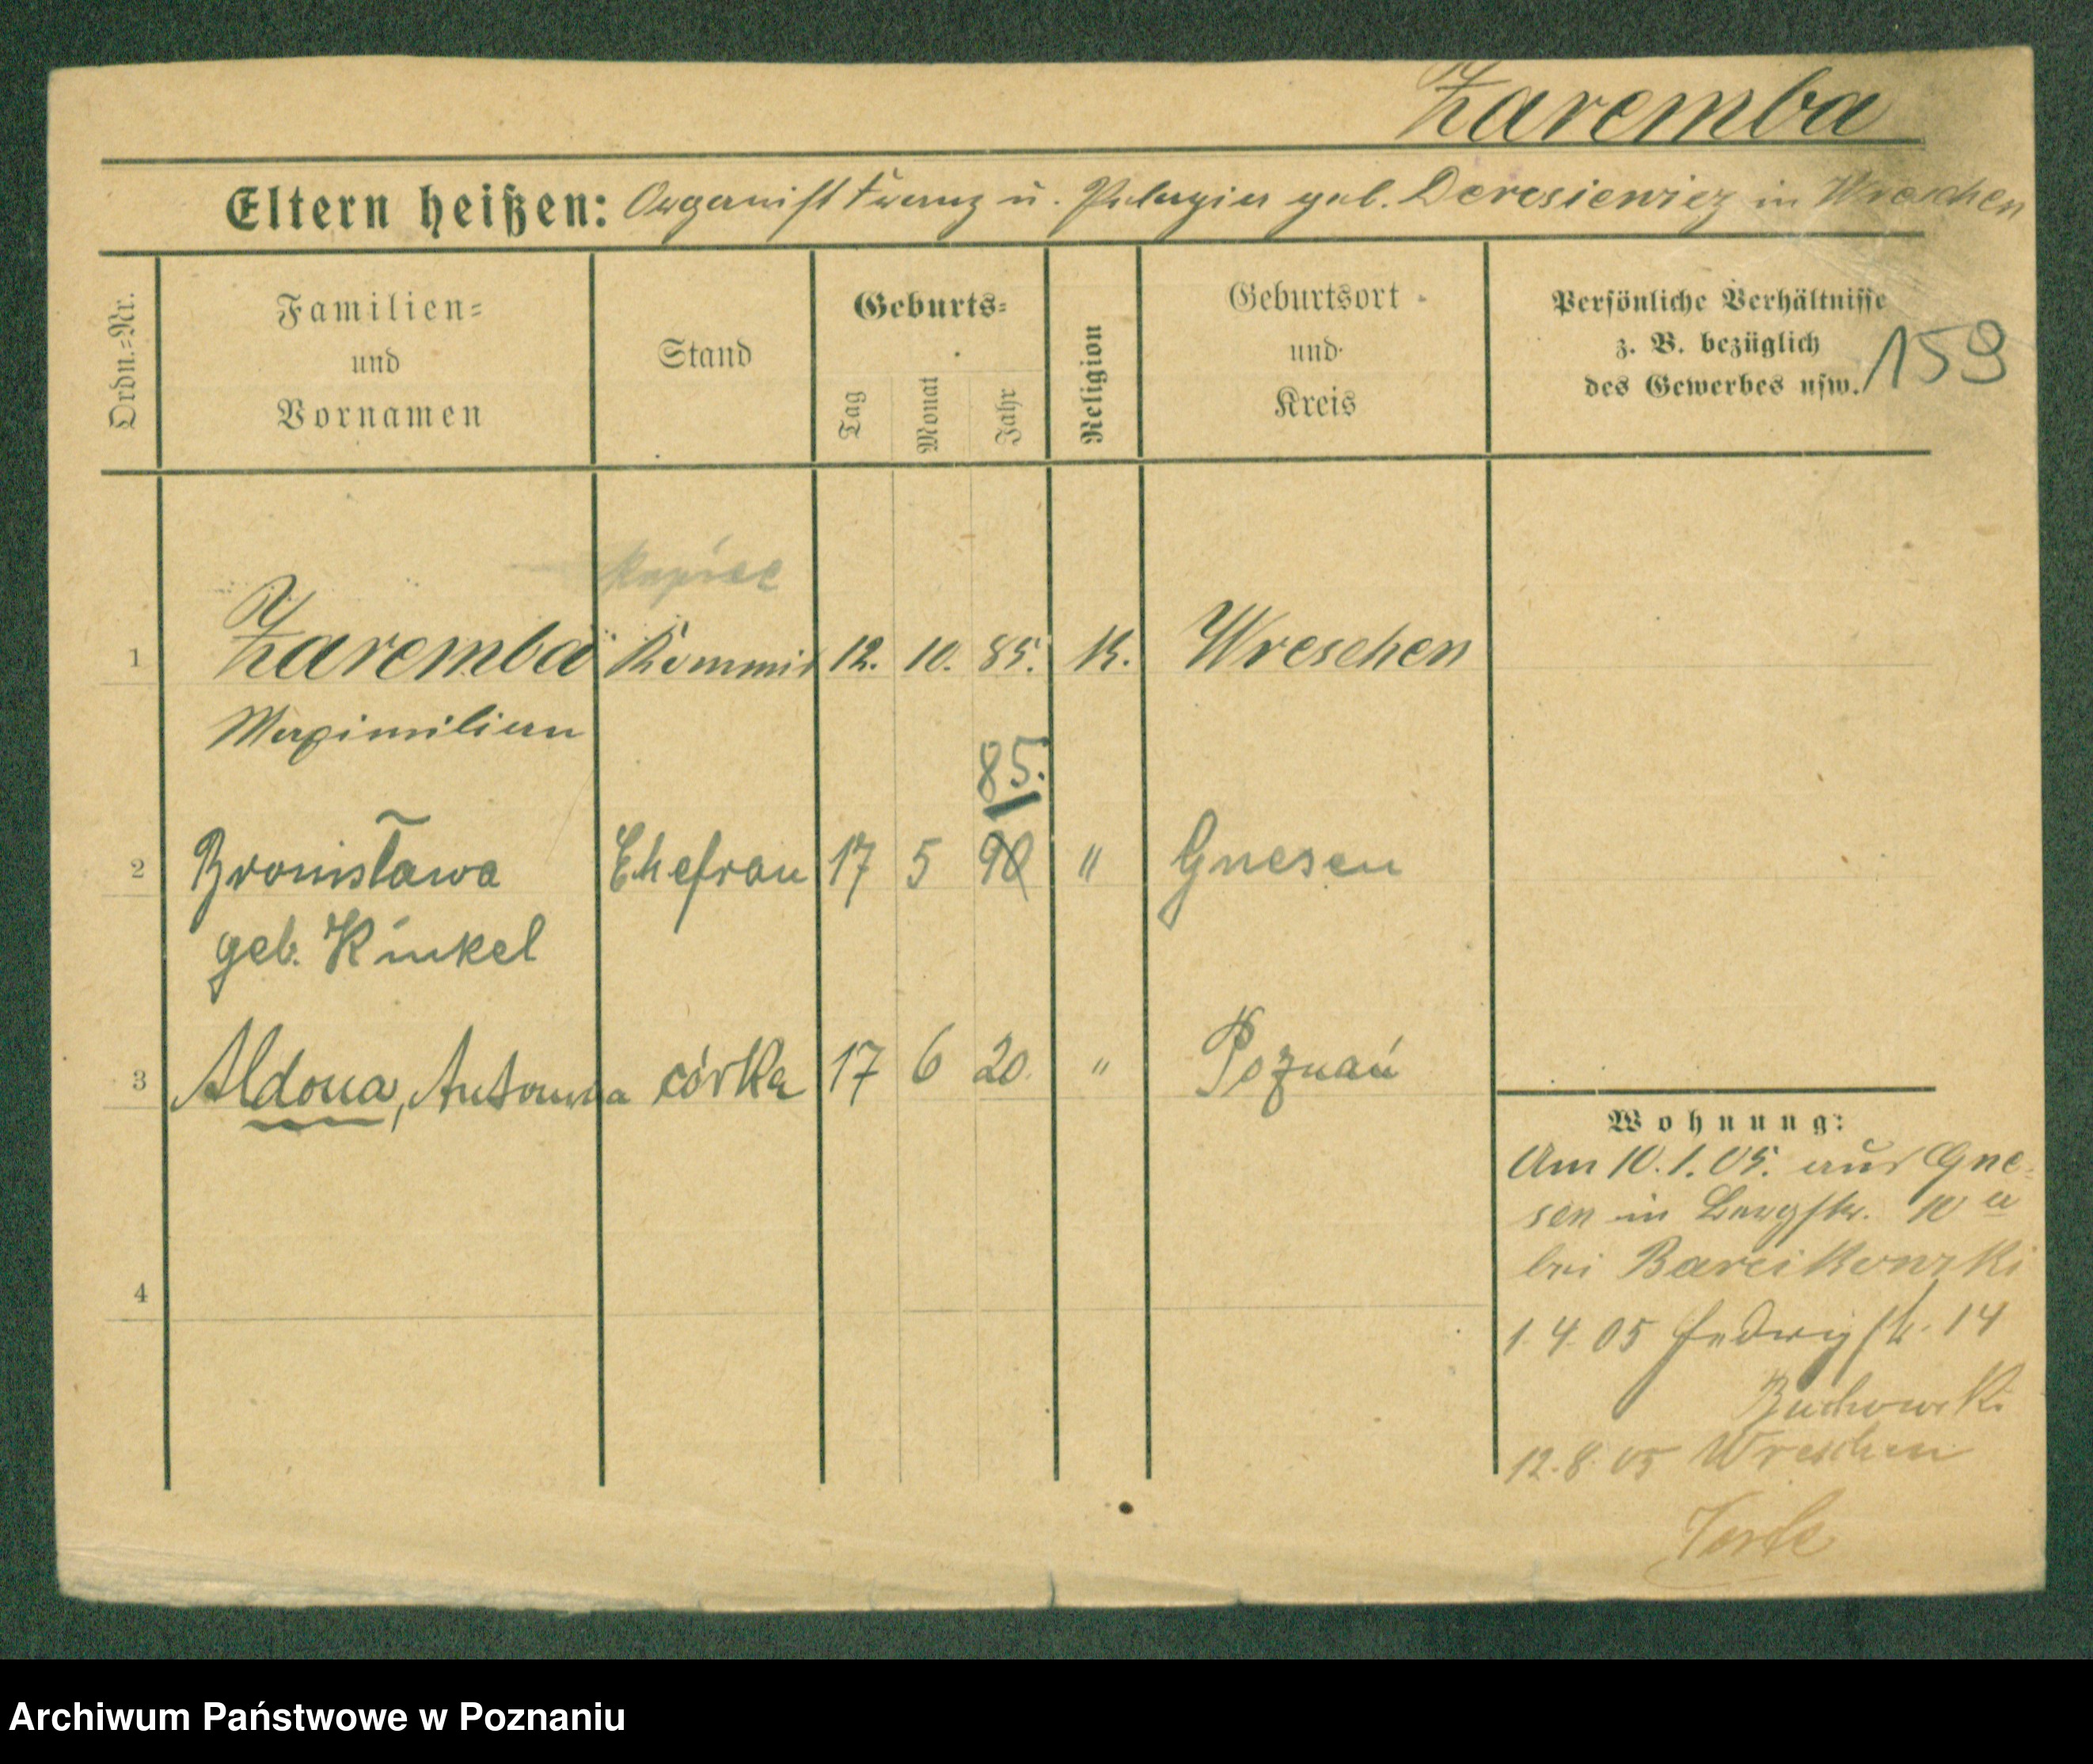 Zaremba
Eltern heißen: Organist Franz u. Pelagia geb. Deresiewicz in Wreschen
Ordn.=Nr.
Familien=
und
Vornamen
Stand
Geburts=
Tag
Monat
Jahr
Religion
Geburtsort
und
Kreis
Persönliche Verhältnisse
z. B. bezüglich
des Gewerbes usw.
159
kupiec
1 Zaremba Kommis 12. 10. 85. K. Wreschen
Maximilian
85.
2 Bronisława Ehefrau 17 5 90 " Gnesen
geb. Kunkel
3 Aldona, Antonina córka 17 6 20 " Poznań
4
Wohnung:
Am 10.1.05. aus Gne-
sen in Bergstr. 10 a
bei Barcikowski
1.4.05 Hedwigstr. 14
Buchowski
12.8.05 Wreschen
Archiwum Państwowe w Poznaniu